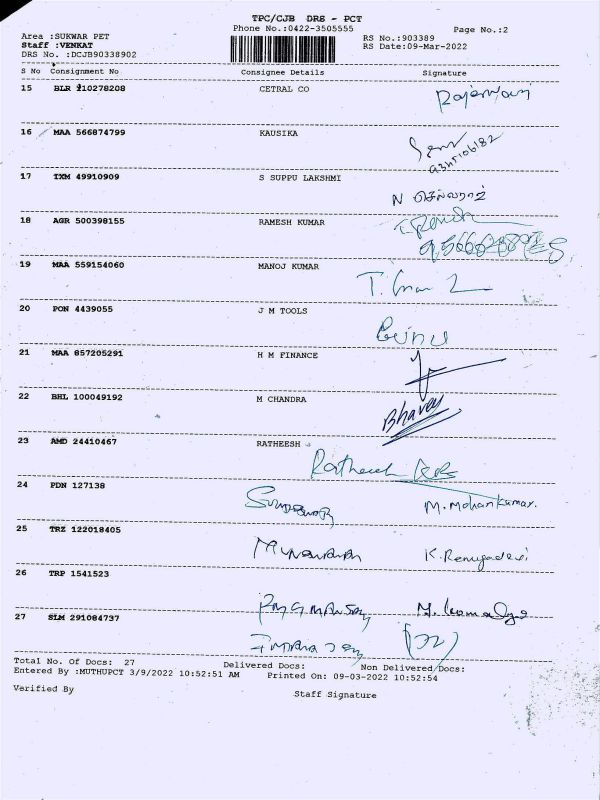 TPC/CJB DRS - PCT
Phone No.:0422-3505555
Page No.:2
Area :SUKWAR PET
RS No.:903389
Staff :VENKAT
RS Date:09-Mar-2022
DRS No. :DCJB90338902
S No Consignment No Consignee Details Signature
15 BLR 210278208 CETRAL CO
16 MAA 566874799 KAUSIKA
17 TXM 49910909 S SUPPU LAKSHMI
N செல்வராஜ்
18 AGR 500398155 RAMESH KUMAR
19 MAA 559154060 MANOJ KUMAR
20 PON 4439055 J M TOOLS
Binu
21 MAA 857205291 H M FINANCE
22 BHL 100049192 M CHANDRA
Bhavey
23 AMD 24410467 RATHEESH
Ratheesh
24 PDN 127138 M. Mohankumar.
25 TRZ 122018405
K. Renugadevi
26 TRP 1541523
27 SLM 291084737
Total No. Of Docs: 27 Delivered Docs: Non Delivered Docs:
Entered By :MUTHUPCT 3/9/2022 10:52:51 AM Printed On: 09-03-2022 10:52:54
Verified By Staff Signature